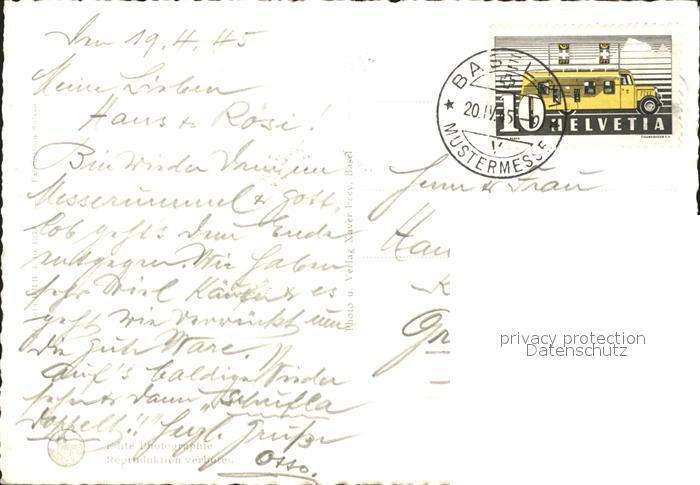 Den 19.4.45
Meine Lieben
Hans & Rösi!
Bin wieder drin im
Messerummel & gott
lob geht's dem Ende
entgegen. Wir haben
sehr viel Käufer & es
geht wie verrückt um
die gute Ware.
Auf's baldige Wieder
sehn & dann
doppelt!!" Hrzl. Grüße
Otto.
Photo u. Verlag Xaver Frey, Basel
Echte Photographie
Reproduktion verboten
BASEL
20.IV.45
MUSTERMESSE
10 HELVETIA
Herrn & Frau
Han
Gr
privacy protection
Datenschutz